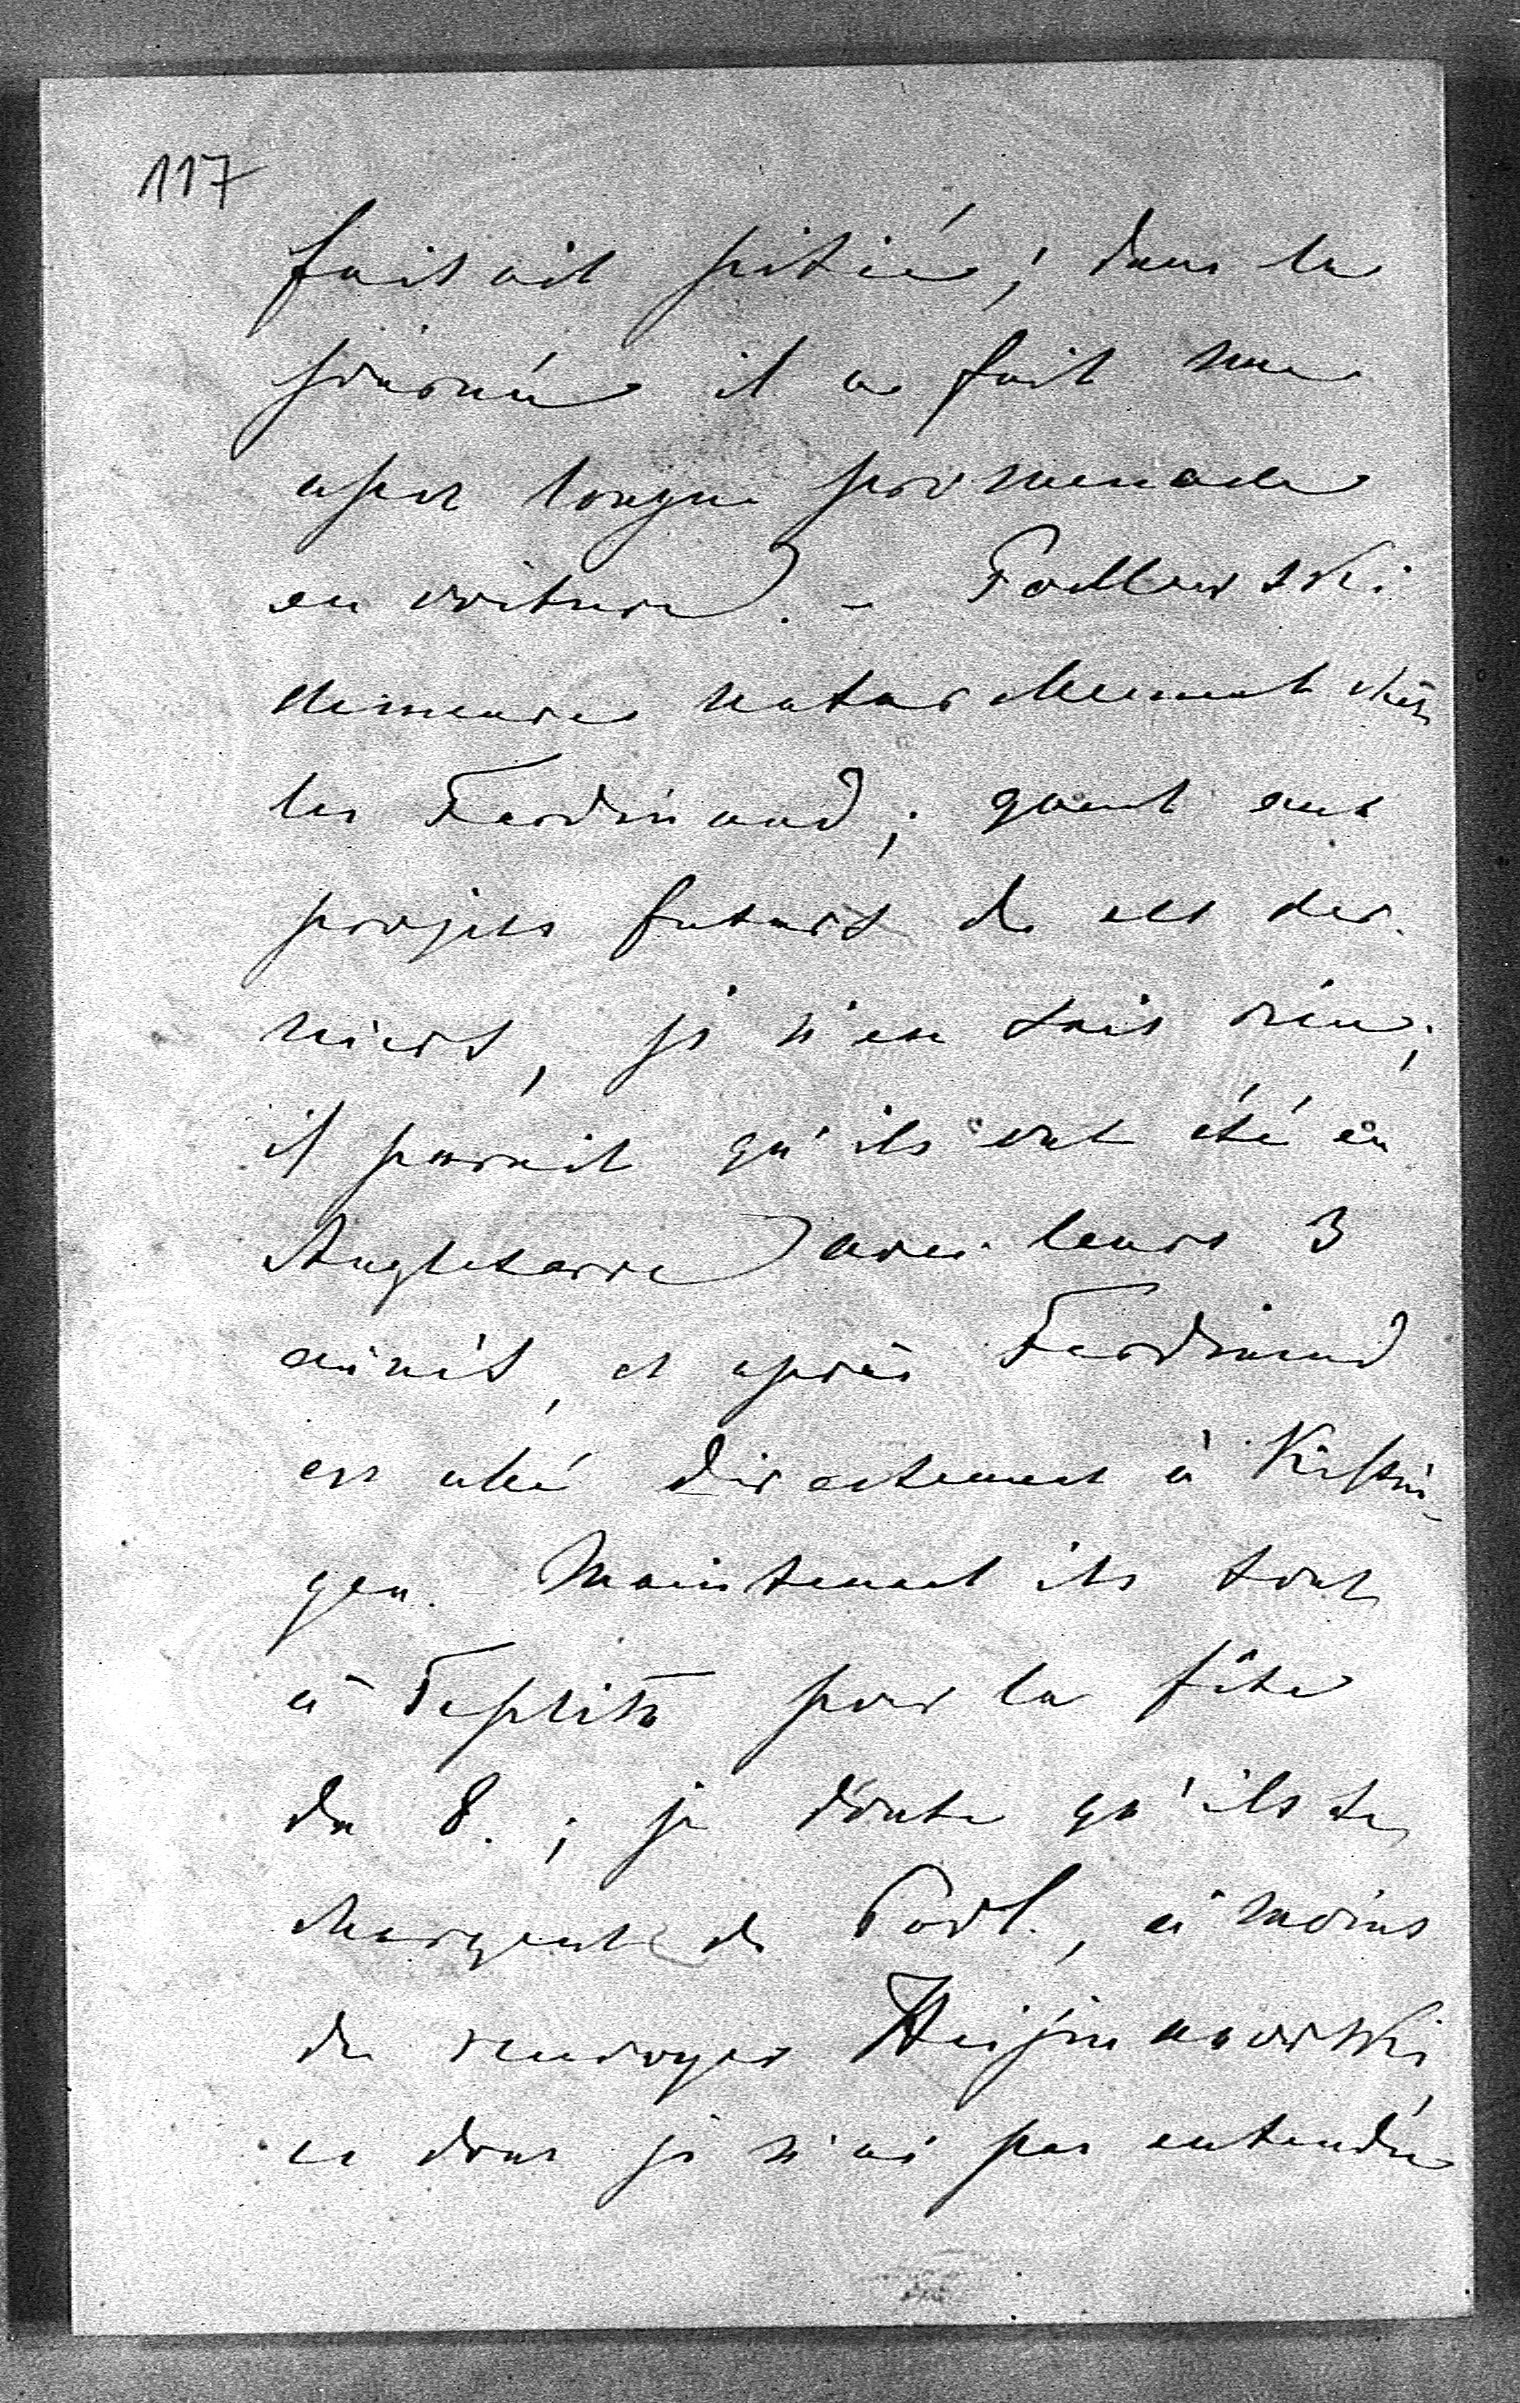 117
faisait pitié; dans la
journée il a fait une
assez longue promenade
en voiture. – Podlewski
demeure naturellement chez
les Ferdinand; quant aux
projets futurs de ces der-
niers, je n'en sais rien;
il parait qu'ils ont été en
Angleterre avec leurs 3
ainés, et après Ferdinand
est allé directement à Kissin-
gen. Maintenant ils sont
à Teplitz pour la fête
du 8.; je doute qu'ils se
chargent de Podl., à moins
de renvoyer
ce dont je n'ai pas entendu